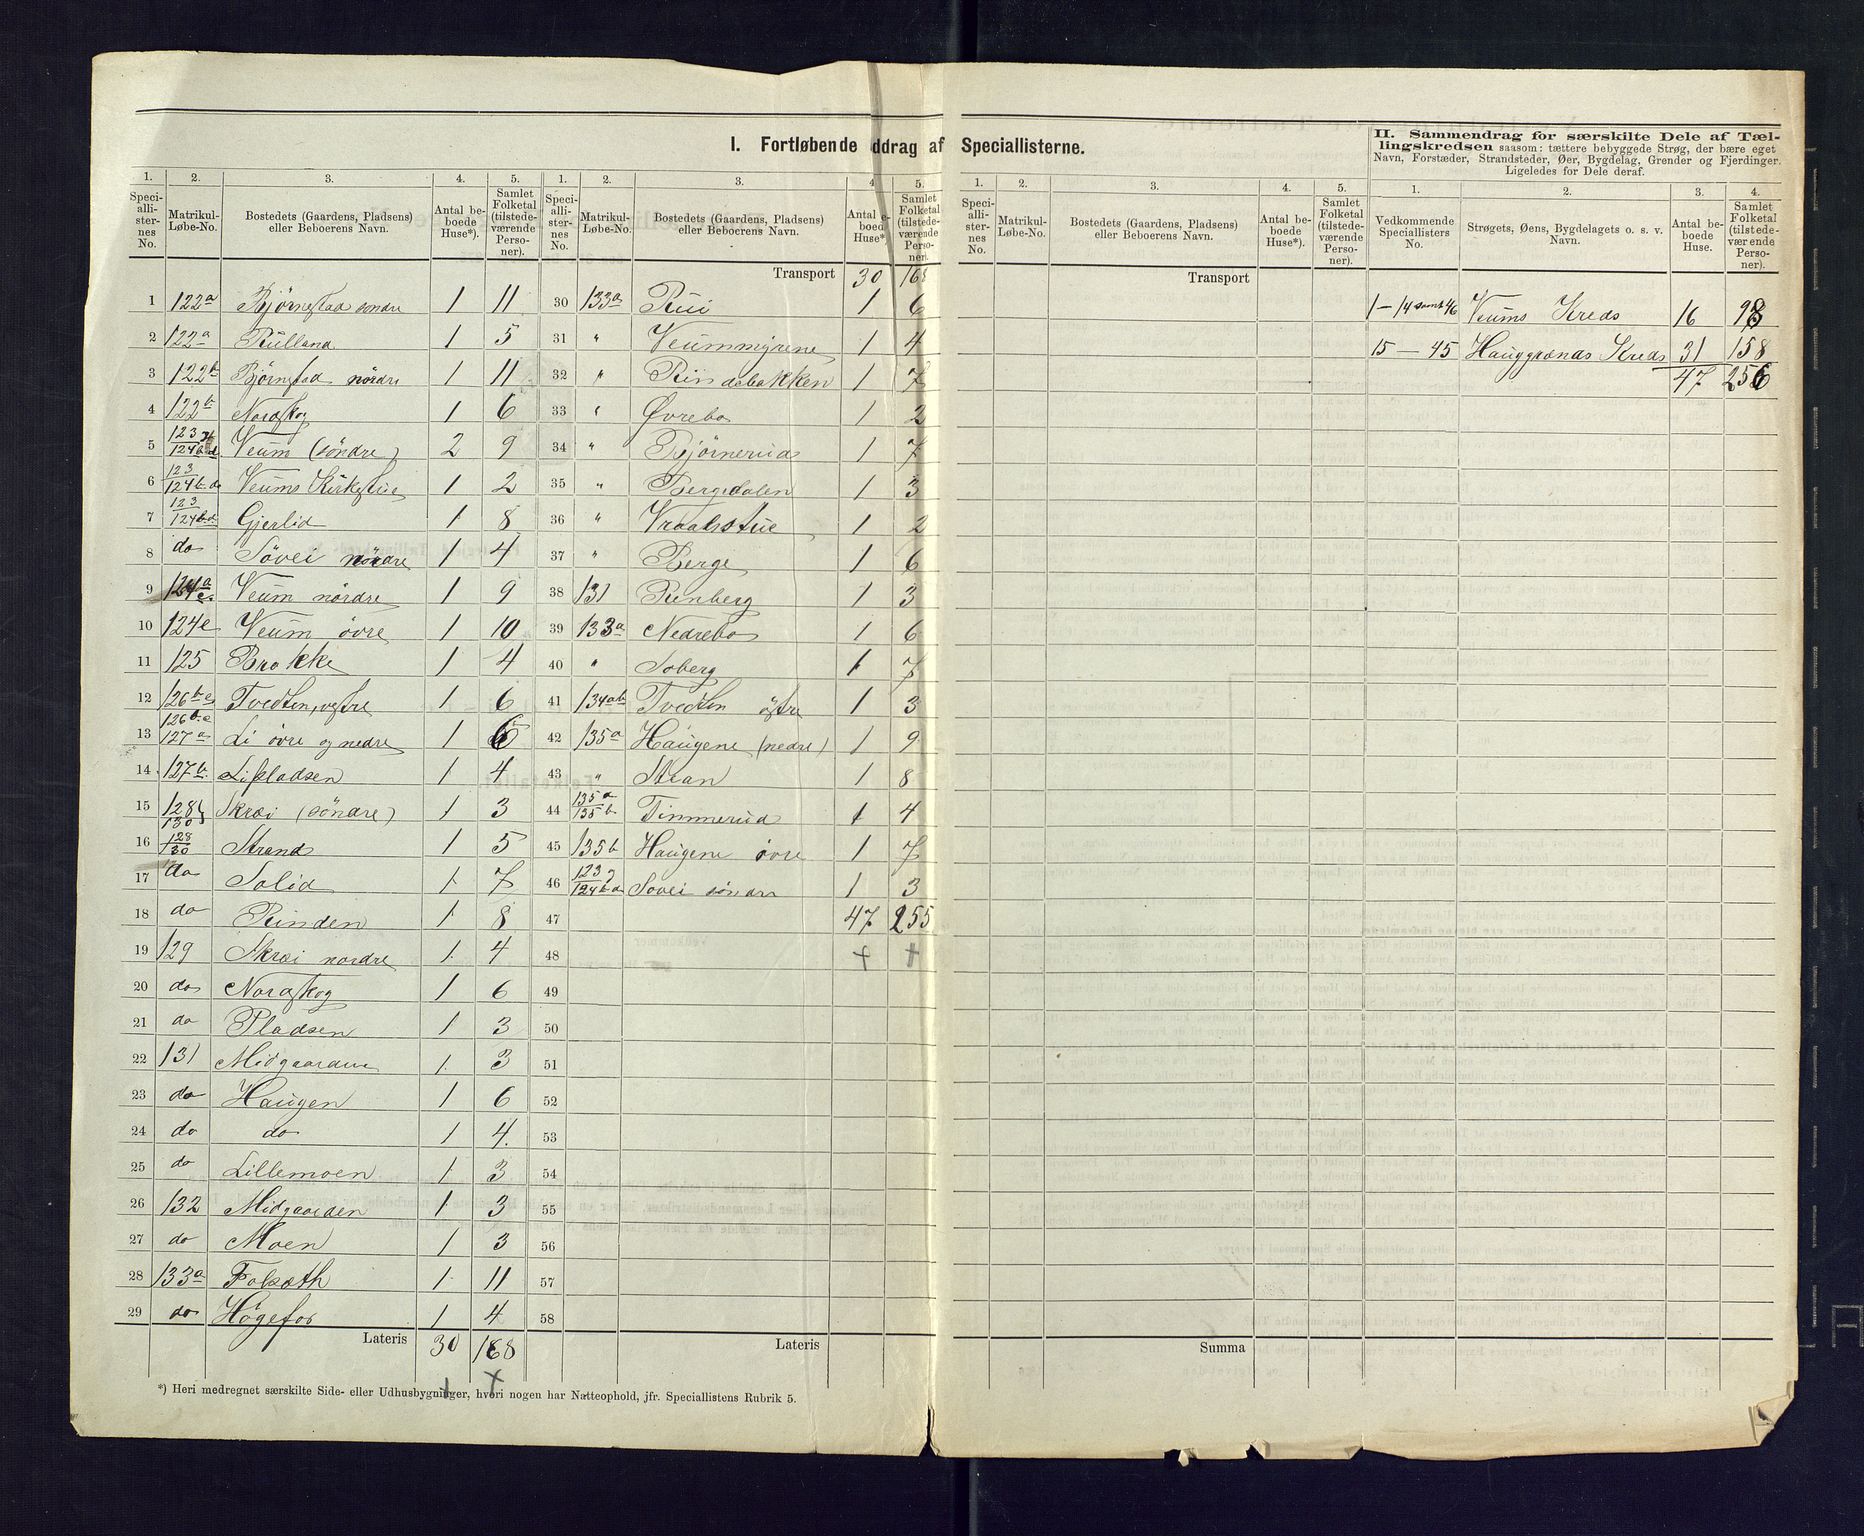 I. Fortløbende ddrag af Speciallisterne.
1. 2. 3. 4. 5. 1. 2. 3. 4 5.
Speciallisternes No. Matrikul-Løbe-No. Bostedets (Gaardens, Pladsens) eller Beboerens Navn. Antal beboede Huse*). Samlet Folketal (tilstedeværende Personer).
Transport 30 168
1 122a Bjørnestad søndre 1 11
2 122a Rulland 1 5
3 122b Bjørnstad nördre 1 11
4 122b Nordskog 1 6
5 123 124b-d Veum (söndre) 2 9
6 123 124b-d Veums Kirkestue 1 2
7 123 124b-d Gjerlid 1 8
8 do Sövei nördre 1 4
9 124a e. Veum nördre 1 9
10 124e Veum øvre 1 10
11 125 Brokke 1 4
12 126b-e Tvedten, vestre 1 6
13 126b-e 127a Li övre og nedre 1 6
14 127b. Lipladsen 1 4
15 128 130 Skræi (söndre) 1 3
16 128 130 Strand 1 5
17 do Solid 1 7
18 do Rinden 1 8
19 129 Skræi nordre 1 4
20 do Nordskog 1 6
21 do Pladsen 1 3
22 131 Midgaarden 1 3
23 do Haugen 1 6
24 do do 1 4.
25 do Lillemoen 1 3
26 132 Midgaarden 1 3
27 do Moen 1 3
28 133a Folsæth 1 11
29 do Høgefos 1 4
Lateris 30 168
30 133a Rui 1 6
31 " Veummyrene 1 4
32 " Rindebakken 1 7
33 " Øvrebø 1 2
34 " Bjørnerud 1 7
35 " Bergedalen 1 3
36 " Vraalstue 1 2
37 " Berge 1 6
38 131 Renberg 1 3
39 133a Nedrebø 1 6
40 " Soberg 1 7
41 134ab Tvedten östre 1 3
42 135a Haugene (nedre) 1 9
43 " Straan 1 8
44 135a 135b Timmerud 1 4
45 135b Haugene øvre 1 7
46 123 124b-d Sövei søndre 1 3
47 47 255
48 + +
49
50
51
52
53
54
55
56
57
58
Lateris
*) Heri medregnet særskilte Side- eller Udhusbygninger, hvori nogen har Natteophold, jfr. Speciallistens Rubrik 5.
1. 2. 3. 4. 5.
Speciallisternes No. Matrikul-Løbe-No. Bostedets (Gaardens, Pladsens) eller Beboerens Navn. Antal beboede Huse*). Samlet Folketal (tilstedeværende Personer).
Transport
Summa
II. Sammendrag for særskilte Dele af Tællingskredsen saasom: tættere bebyggede Strøg, der bære eget Navn, Forstæder, Strandsteder, Øer, Bygdelag, Grender og Fjerdinger. Ligeledes for Dele deraf.
1. 2. 3. 4.
Vedkommende Speciallisters No. Strøgets, Øens, Bygdelagets o. s. v. Navn. Antal beboede Huse. Samlet Folketal (tilstedeværende Personer).
1-14 samt 46 Veums Kreds 16 98
15-45 Hauggrænas Kreds 31 158
47 256